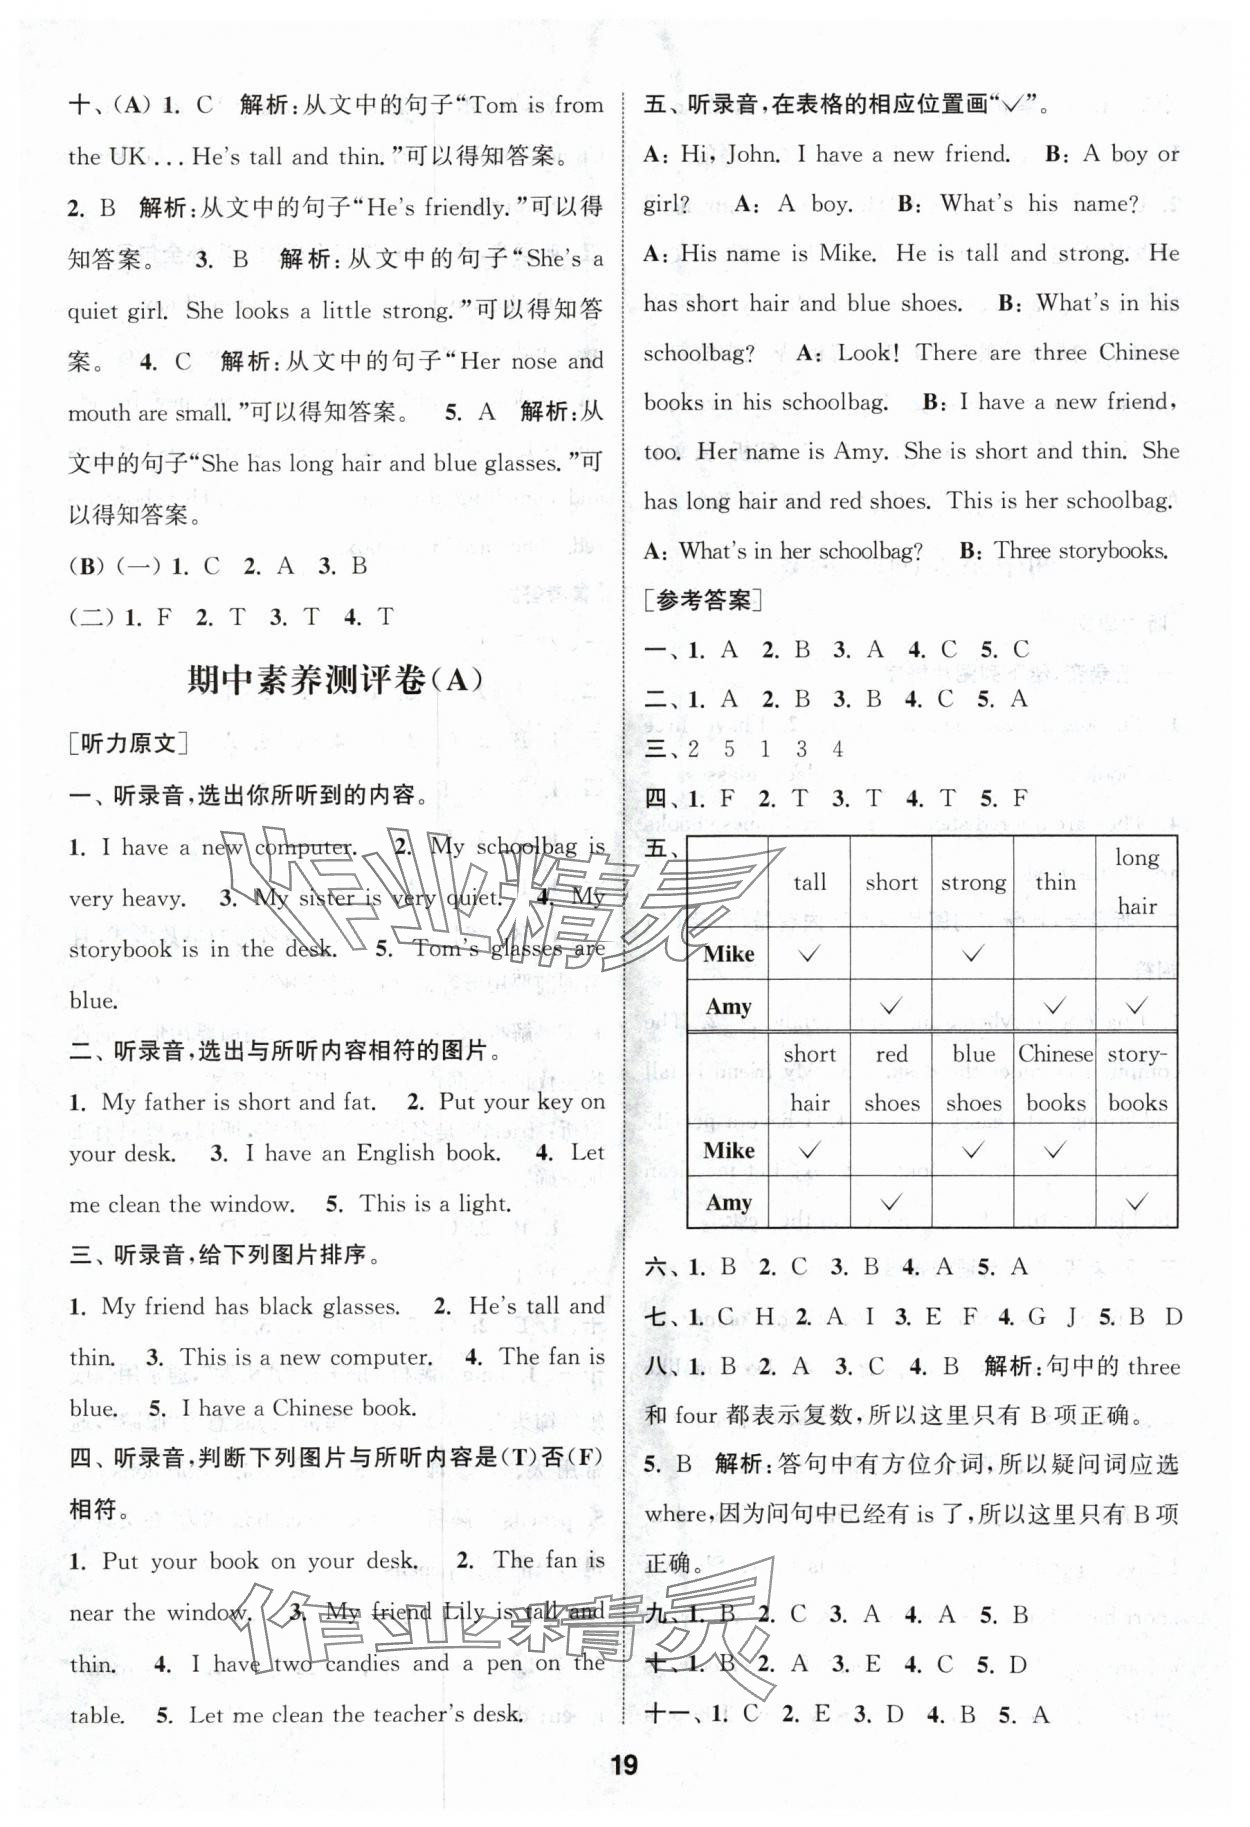 十、(A) 1. C 解析:从文中的句子“Tom is from
the UK ... He's tall and thin.”可以得知答案。
2. B 解析:从文中的句子“He's friendly.”可以得
知答案。 3. B 解析:从文中的句子“She's a
quiet girl. She looks a little strong.”可以得知答
案。 4. C 解析:从文中的句子“Her nose and
mouth are small.”可以得知答案。 5. A 解析:从
文中的句子“She has long hair and blue glasses.”可
以得知答案。
(B) (一) 1. C 2. A 3. B
(二) 1. F 2. T 3. T 4. T
期中素养测评卷(A)
[听力原文]
一、听录音,选出你所听到的内容。
1. I have a new computer. 2. My schoolbag is
very heavy. 3. My sister is very quiet. 4. My
storybook is in the desk. 5. Tom's glasses are
blue.
二、听录音,选出与所听内容相符的图片。
1. My father is short and fat. 2. Put your key on
your desk. 3. I have an English book. 4. Let
me clean the window. 5. This is a light.
三、听录音,给下列图片排序。
1. My friend has black glasses. 2. He's tall and
thin. 3. This is a new computer. 4. The fan is
blue. 5. I have a Chinese book.
四、听录音,判断下列图片与所听内容是(T)否(F)
相符。
1. Put your book on your desk. 2. The fan is
near the window. 3. My friend Lily is tall and
thin. 4. I have two candies and a pen on the
table. 5. Let me clean the teacher's desk.
五、听录音,在表格的相应位置画“✓”。
A: Hi, John. I have a new friend. B: A boy or
girl? A: A boy. B: What's his name?
A: His name is Mike. He is tall and strong. He
has short hair and blue shoes. B: What's in his
schoolbag? A: Look! There are three Chinese
books in his schoolbag. B: I have a new friend,
too. Her name is Amy. She is short and thin. She
has long hair and red shoes. This is her schoolbag.
A: What's in her schoolbag? B: Three storybooks.
[参考答案]
一、1. A 2. B 3. A 4. C 5. C
二、1. A 2. B 3. B 4. C 5. A
三、2 5 1 3 4
四、1. F 2. T 3. T 4. T 5. F
五、 tall short strong thin long hair
Mike ✓ ✓
Amy ✓ ✓ ✓
short hair red shoes blue shoes Chinese books story-books
Mike ✓ ✓ ✓
Amy ✓ ✓
六、1. B 2. C 3. B 4. A 5. A
七、1. C H 2. A I 3. E F 4. G J 5. B D
八、1. B 2. A 3. C 4. B 解析:句中的 three
和 four 都表示复数,所以这里只有 B 项正确。
5. B 解析:答句中有方位介词,所以疑问词应选
where,因为问句中已经有 is 了,所以这里只有 B 项
正确。
九、1. B 2. C 3. A 4. A 5. B
十、1. B 2. A 3. E 4. C 5. D
十一、1. C 2. E 3. D 4. B 5. A
19
作业精灵
作业精灵